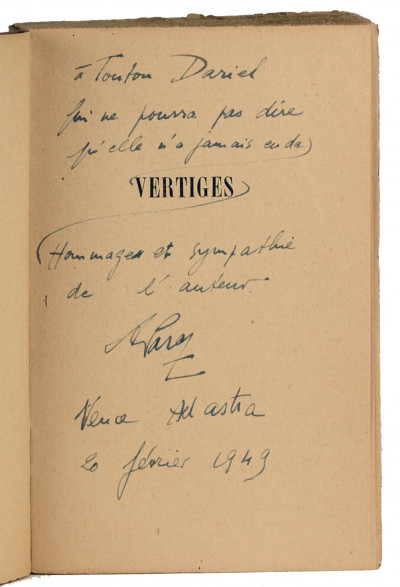 à Tonton Dariel
qui ne pourra pas dire
qu'elle n'a jamais eu de
VERTIGES
Hommages et sympathie
de l'auteur
Vence Ad astra
20 février 1949